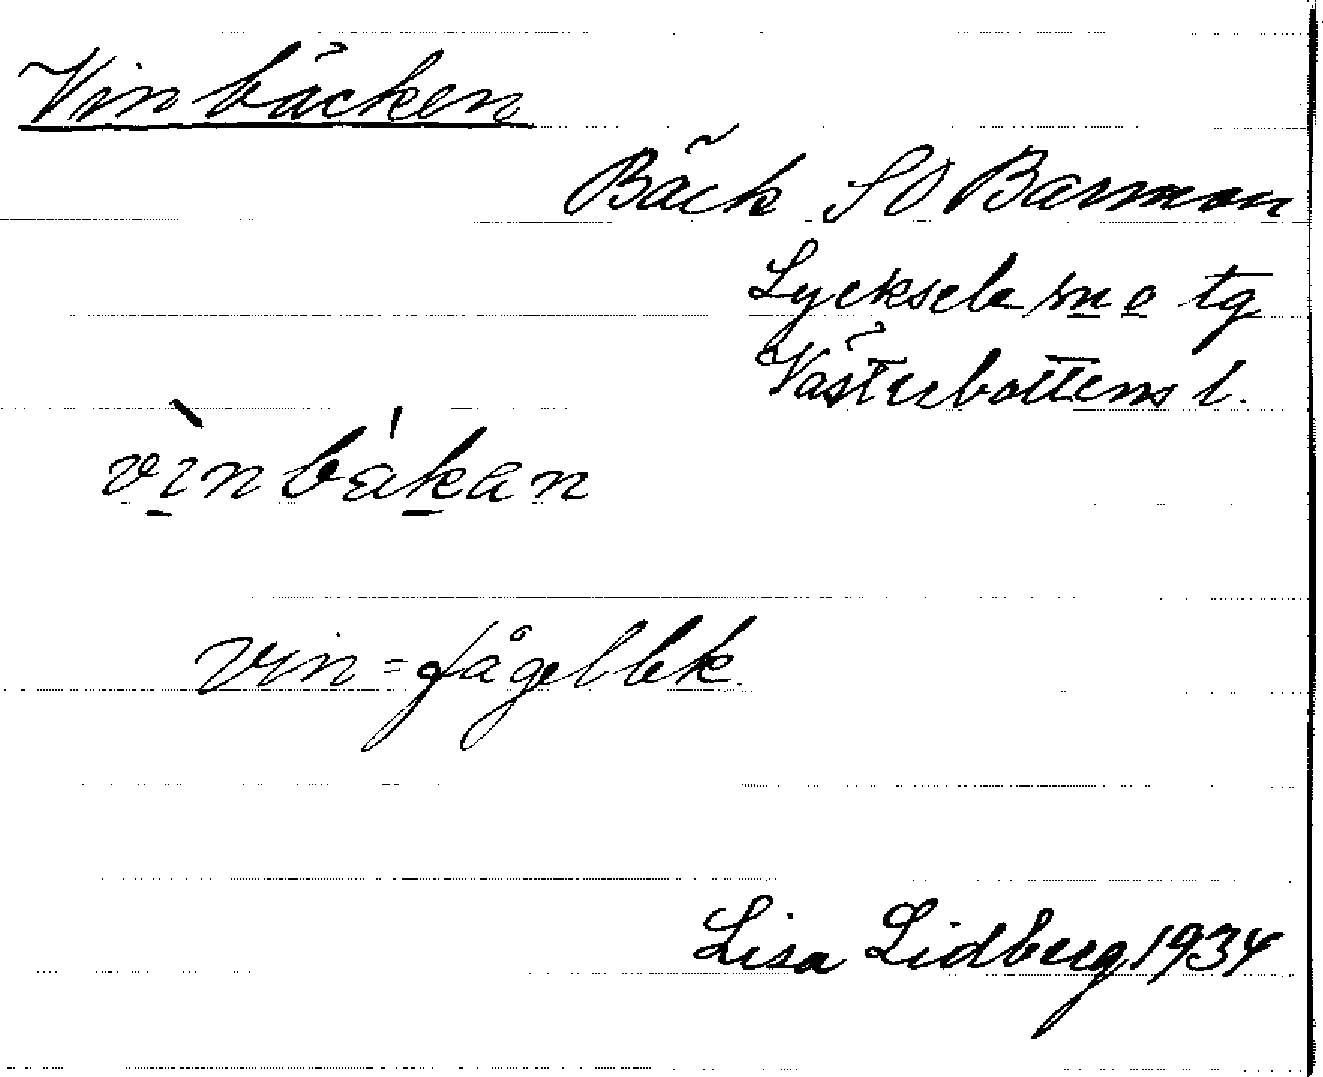 Vinbäcken
Bäck SO Barsman
Lycksele sn o tg
Västerbottens l.
vìnbákan
vin = fågellek.
Lisa Lidberg 1934